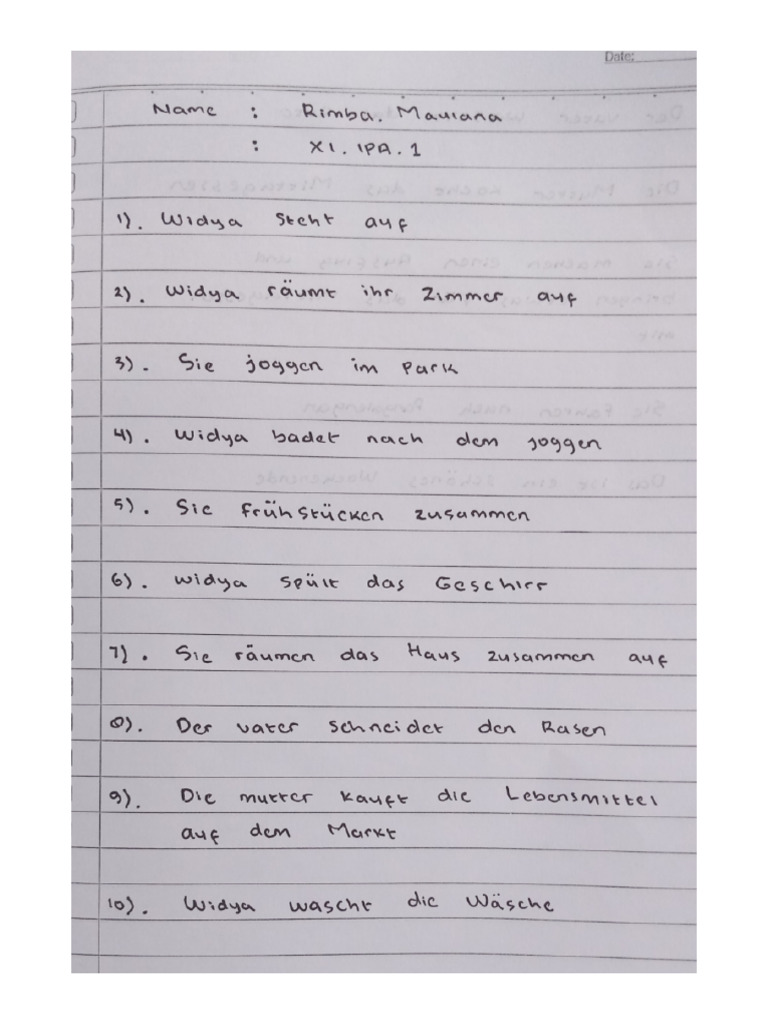 Date:
Name : Rimba. Maulana
: XI. IPA. 1
1). Widya steht auf
2). Widya räumt ihr Zimmer auf
3). Sie joggen im park
4). Widya badet nach dem joggen
5). Sie frühstücken zusammen
6). widya spült das Geschirr
7). Sie räumen das Haus zusammen auf
8). Der vater schneidet den Rasen
9). Die mutter kauft die Lebensmittel
auf dem Markt
10). Widya wascht die Wäsche